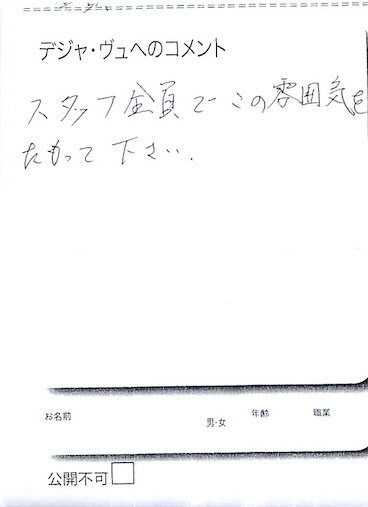 デジャ・ヴュへのコメント
スタッフ全員でこの雰囲気を
たもって下さい.
お名前
男・女
年齢
職業
公開不可